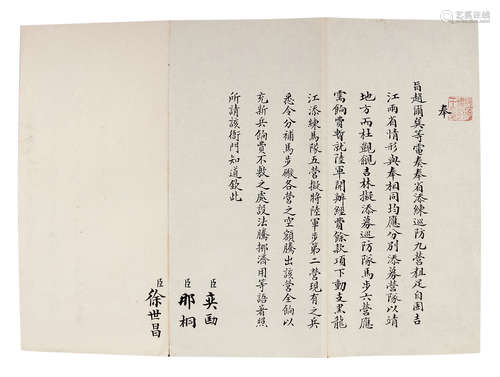 奉
旨趙爾巽等電奏奉省添練巡防九營粗足自固吉
江兩省情形與奉相同均應分別添募營隊以靖
地方而杜覬覦吉林擬添募巡防隊馬步六營應
需餉費暫就陸軍開辦經費餘款項下動支黑龍
江添練馬隊五營擬將陸軍步第二營現有之兵
悉令分補馬步礮各營之空額騰出該營全餉以
充新兵餉費不敷之處設法騰挪濟用等語著照
所請該衙門知道欽此
臣奕劻
臣那桐
臣徐世昌